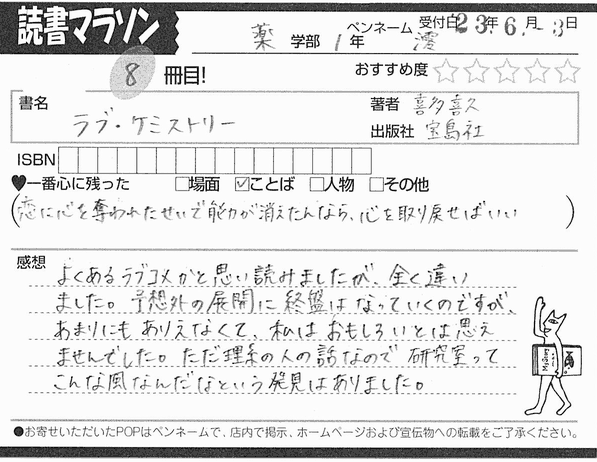 読書マラソン
薬 学部 1年 ペンネーム 澪 受付日 23年 6月 3日
8 冊目!
おすすめ度 ☆☆☆☆☆
書名 ラブ・ケミストリー
著者 喜多喜久
出版社 宝島社
ISBN
♥一番心に残った □場面 ☑ことば □人物 □その他
(恋に心を奪われたせいで能力が消えたんなら、心を取り戻せばいい)
感想
よくあるラブコメかと思い読みましたが、全く違い
ました。予想外の展開に終盤はなっていくのですが、
あまりにもありえなくて、私はおもしろいとは思え
ませんでした。ただ理系の人の話なので研究室って
こんな風なんだなという発見はありました。
●お寄せいただいたPOPはペンネームで、店内で掲示、ホームページおよび宣伝物への転載をご了承ください。